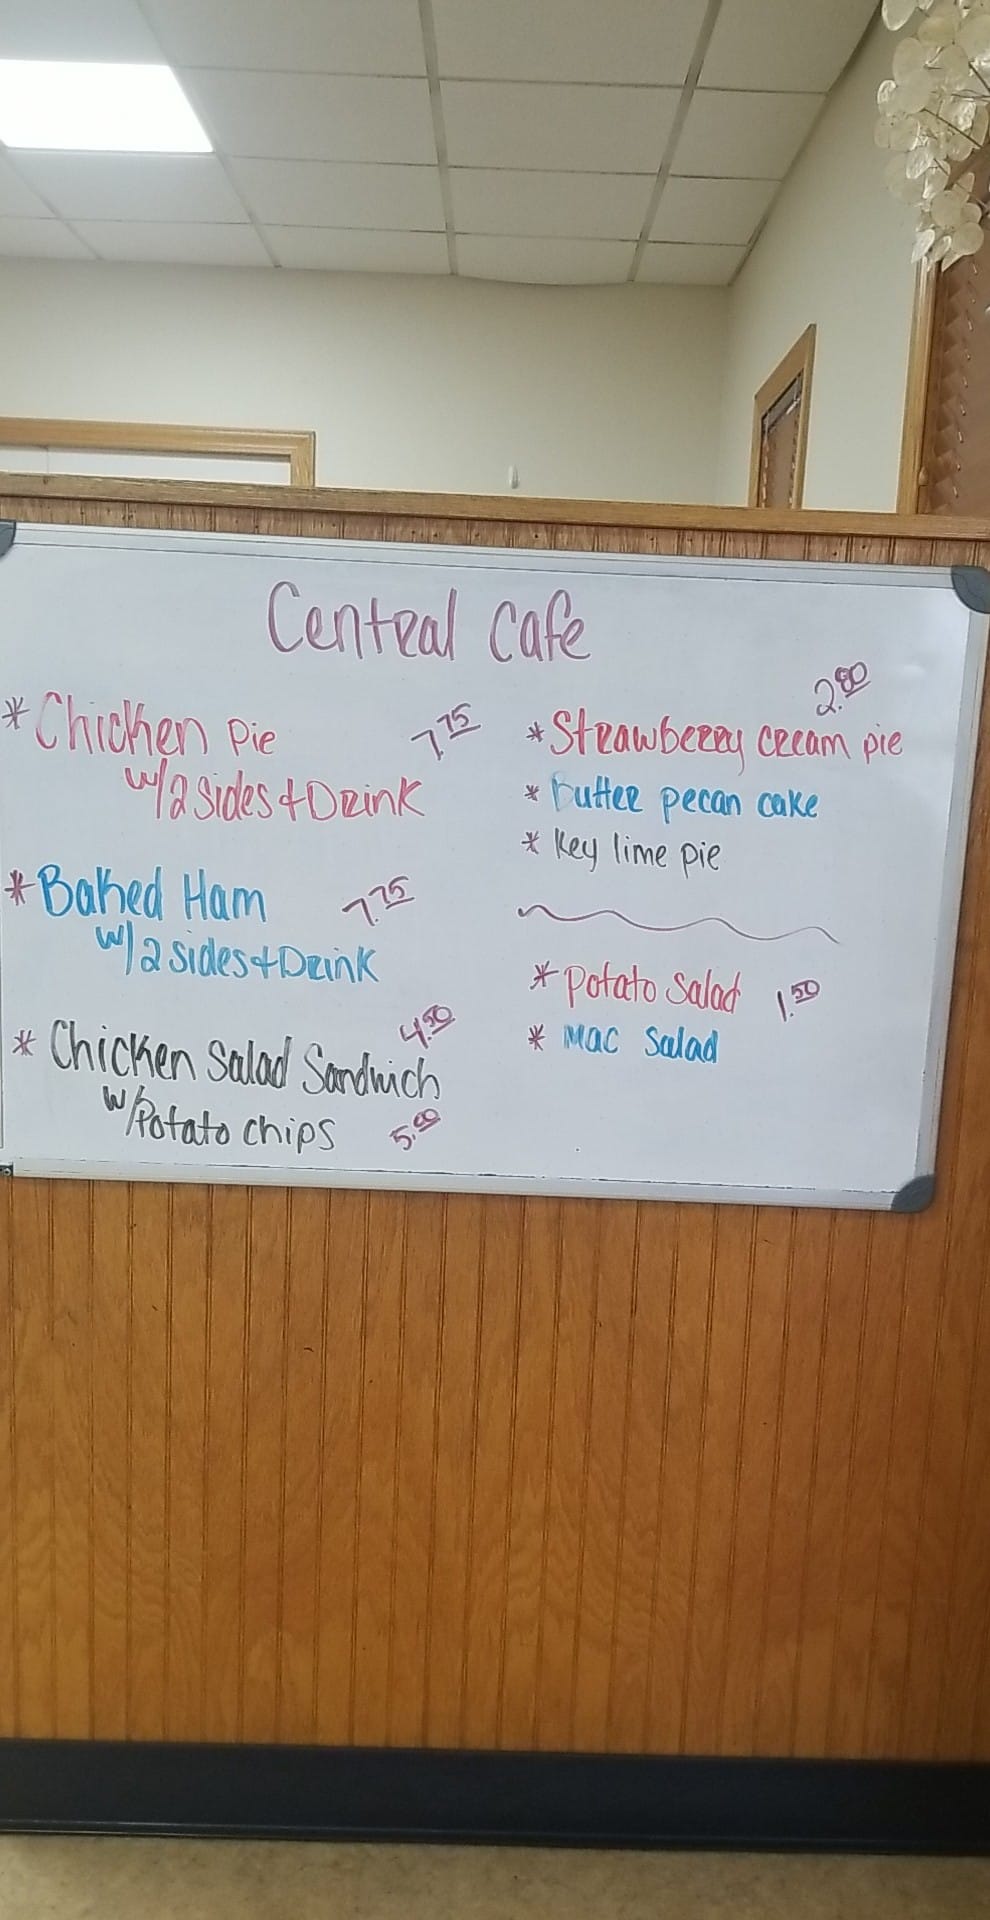 Central Cafe
* Chicken Pie 7.75
w/2 sides + Drink
* Baked Ham 7.75
w/2 sides + Drink
4.50
* Chicken Salad Sandwich
w/Potato chips 5.00
2.80
* Strawberry cream pie
* Butter pecan cake
* Key lime pie
* Potato Salad 1.50
* Mac Salad